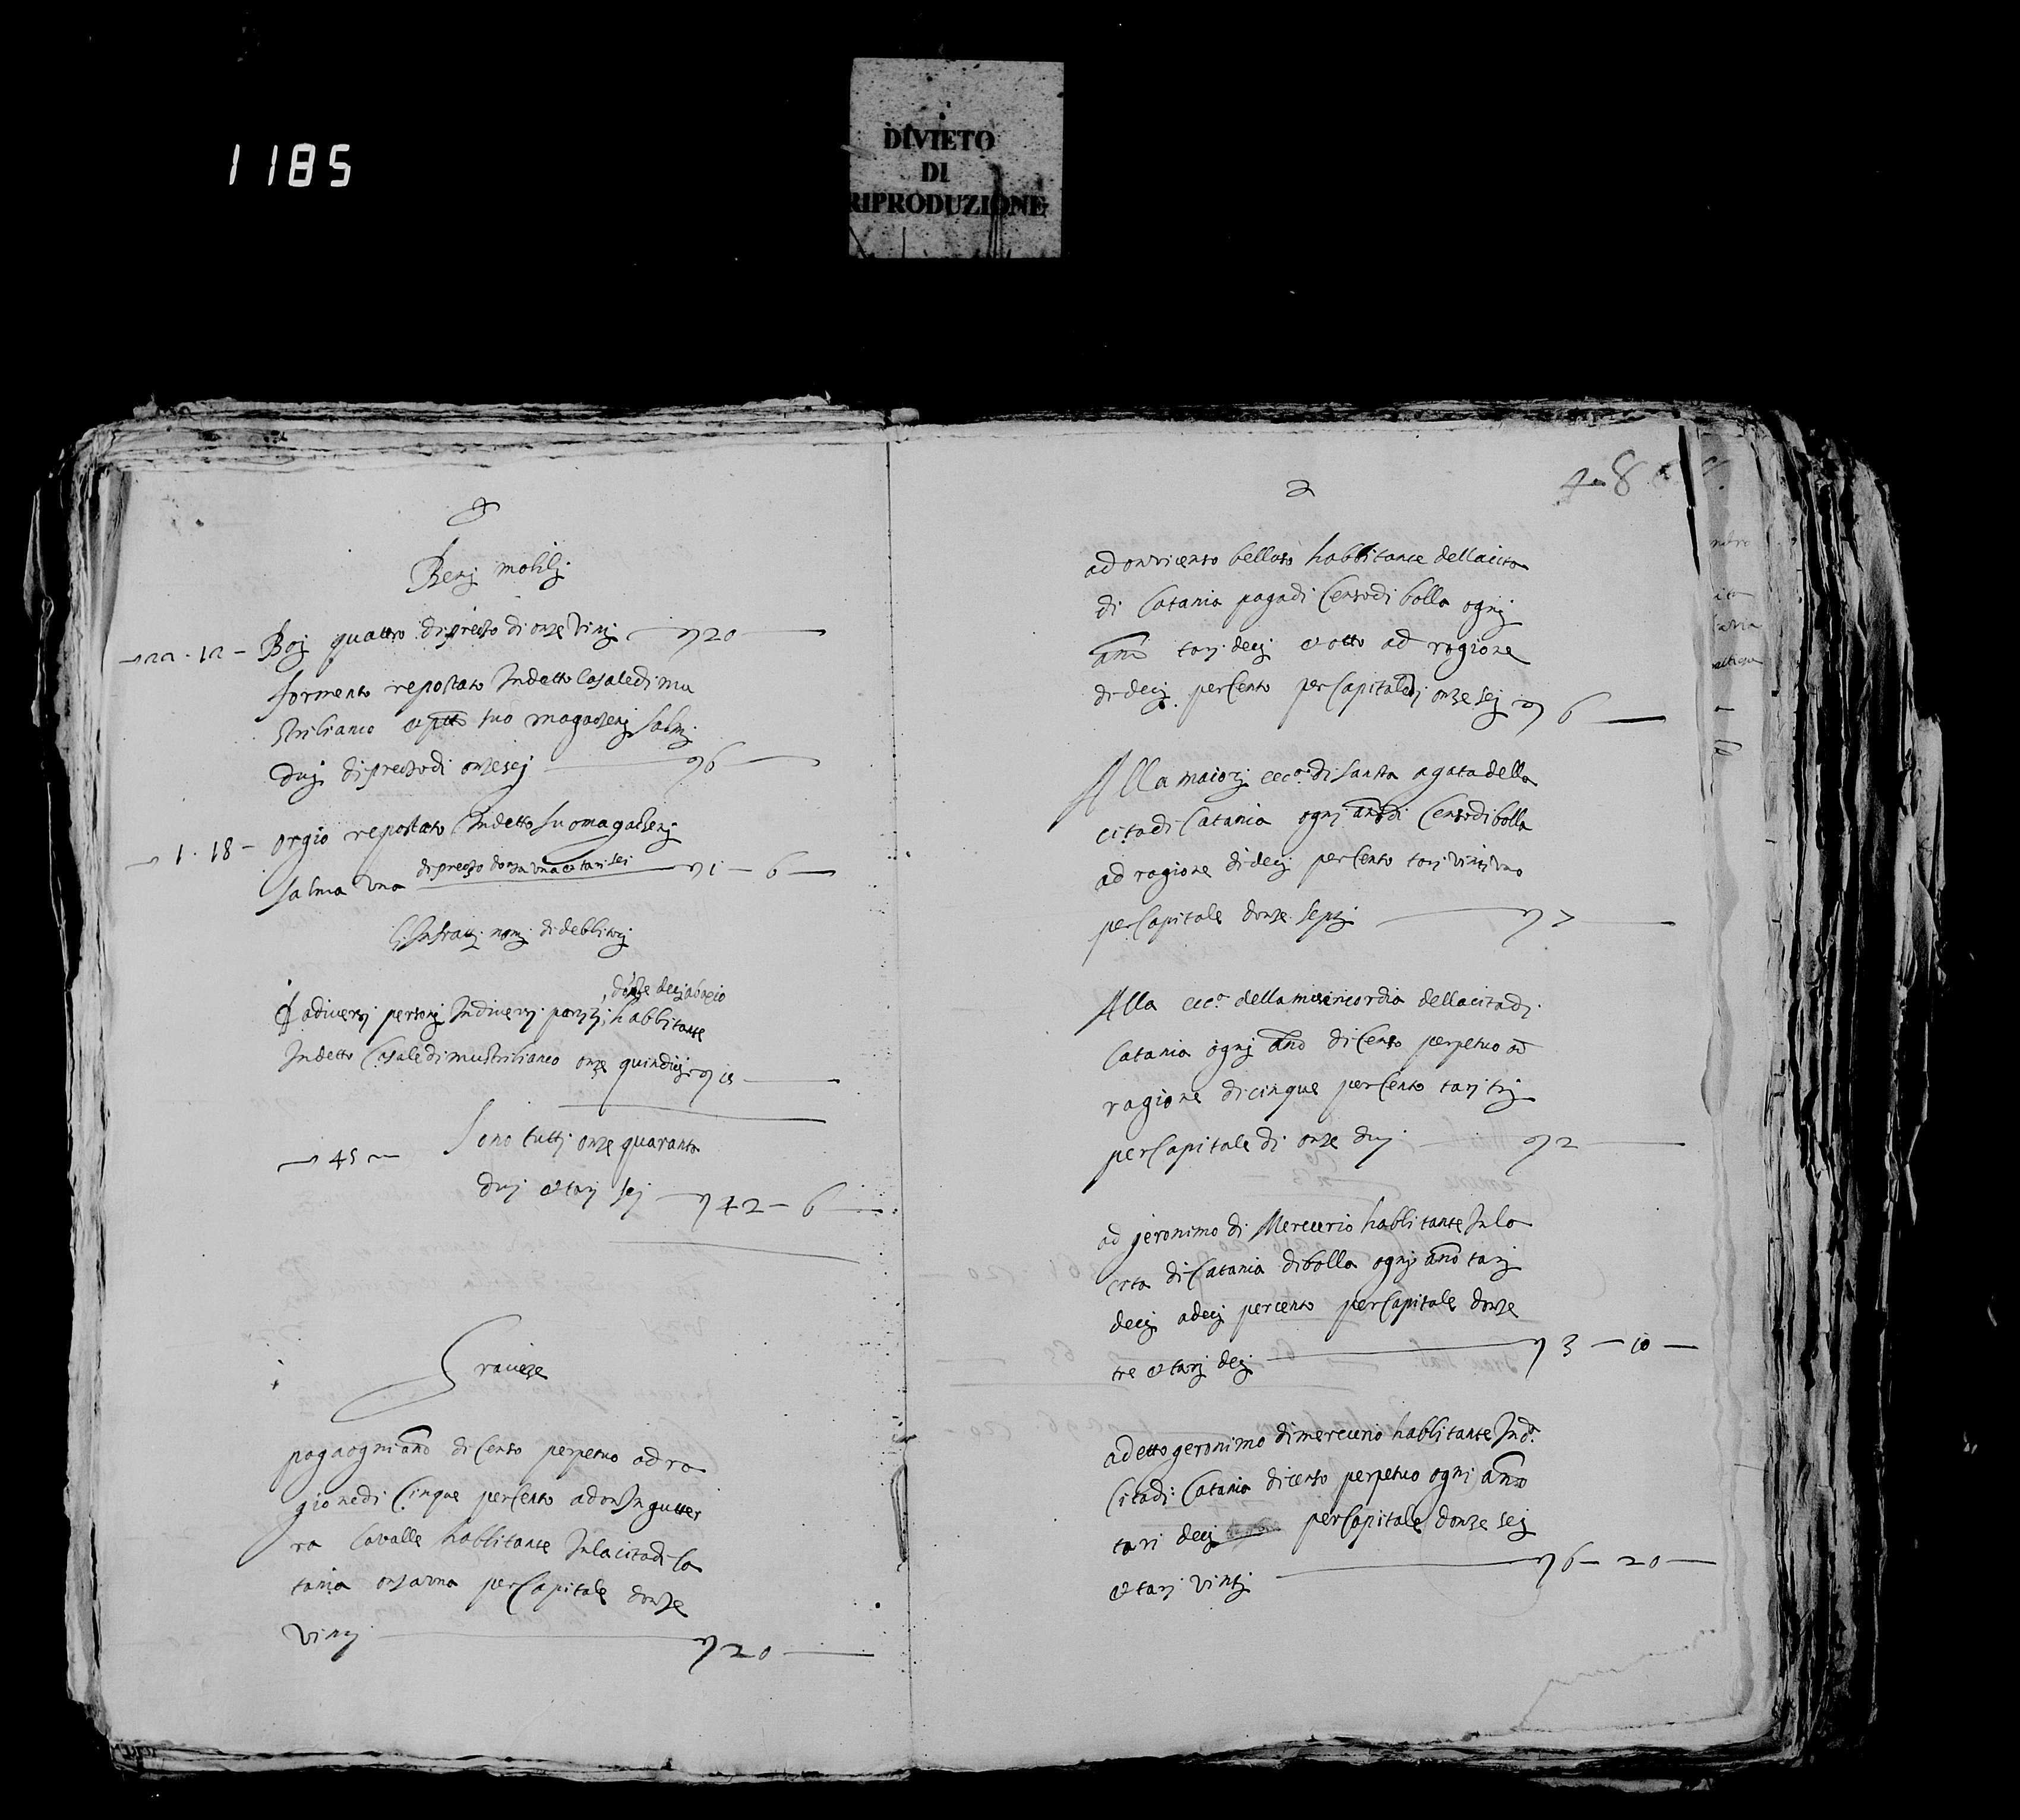 1185
DIVIETO
DI
RIPRODUZIONE
Benj mobilj
Boj quattro di prezo di onze vintj 20
formento repostato In detto Casale di mu
striliano et ptto suo magazenj salmj
duj di prezo di onze sej 6
1 · 18 - orgio repostato In detto suo magazenj
salma una di prezo donza una et tari sei 1 - 6
li Infratti nomj di debbitorj
donze decj a basio
adiuersj personj In diuersj partitj habbitante
In detto Casale di mustrilianco onze quindicj 15
45 Sono tutti onze quaranta
duj et tarj sej 42 - 6
Graueze
paga ogni anno di Censo perpetuo ad ra
gione di Cinque per Cento a don Inguter
ra Cavalle habbitante In la cita di Ca
tania onza una per Capitale donze
vintj 20
48
a don vicenso bellaso habbitante della cita
di Catania paga di Censo di bolla ognj
anno tarj decj et otto ad ragione
di decj per Cento per Capitale di onze sej 6
Alla maiorj ecc.a di Santa agata della
cita di Catania ognj anno di Censo di bolla
ad ragione di decj per Cento tarj vintj uno
per Capitale donze septj 7
Alla ecc.a della misericordia della cita di
Catania ognj anno di Censo perpetuo ad
ragione di cinque per Cento tarj trj
per Capitale di onze duj 2
ad geronimo di Mercurio habbitante In la
cita di Catania di bolla ognj anno tarj
decj a decj per cento per Capitale donze
tre et tarj decj 3 - 10
a detto geronimo di mercurio habbitante In d.a
Cita di Catania di censo perpetuo ognj anno
tari decj per Capitale donze sej
et tarj vintj 6 - 20